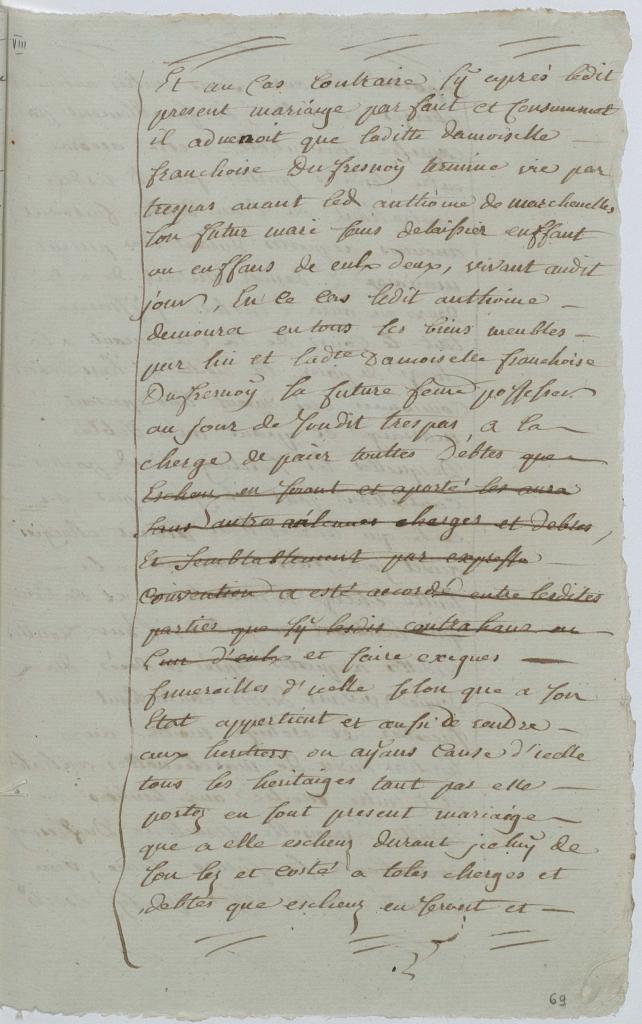 VIII
Et au Cas Contraire sy aprés ledit
present mariaige par fait et Consummet
il advenoit que laditte damoiselle
franchoise Du fresnoy termine vie par
trespas avant led. anthoine de marchenelles
son futur mari sans delaissier enffant
ou enffans de eulx deux, vivant audit
jour, En ce cas ledit anthoine
demoura en tous les biens meubles
par lui et ladte Damoiselle franchoise
Du fresnoy sa future feme possessez
au jour de soudit trespas a la
cherge de paier touttes debtes que
Escheuz en seront et aporté les aura
sans autres cherges et debtes,
Et Semblablement par expresse
Convention a esté accordé entre lesdites
parties que sy lesdis contrahans ou
l'un d'eulx et faire exeques
funerailles d'icelle selon que a son
Etat appertient et aussi de rendre
aux heritiers ou ayans Cause d'icelle
tous les heritaiges tant pas elle
portez en sont present mariaige
que a elle escheuz durant jceluy de
son lez et costé a telles cherges et
debtes que escheuz en seront et
69